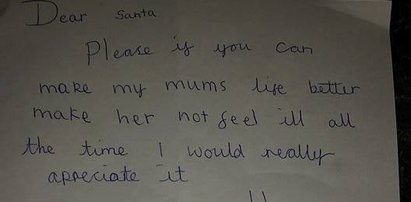 Dear Santa
Please if you can
make my mums life better
make her not feel ill all
the time I would really
apreciate it